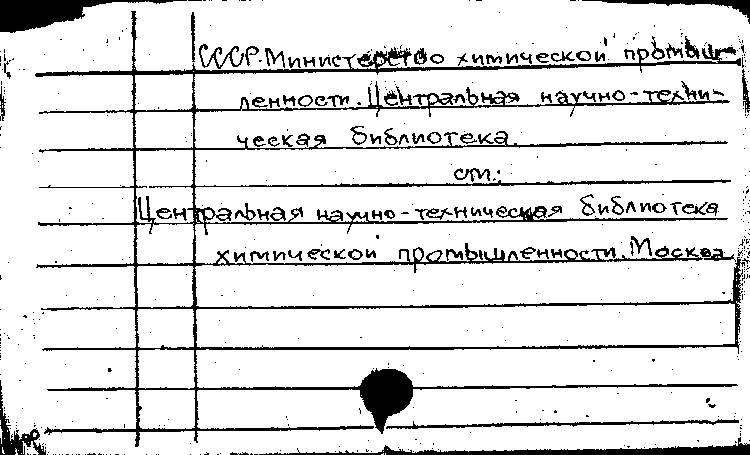 СССР. Министерство химической промыш-
ленности. Центральная научно-техни-
ческая библиотека.
см.:
Центральная научно-техническая библиотека
химической промышленности. Москва